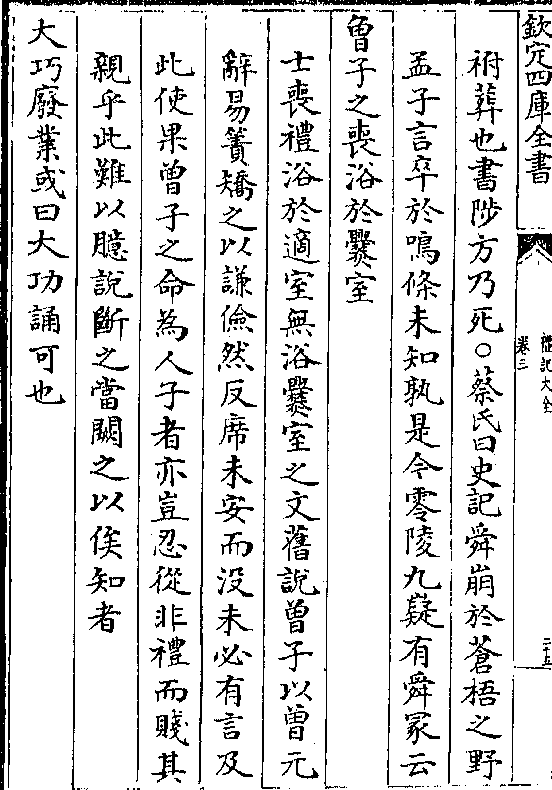 欽定四庫全書
禮記大全
卷三
二十五
祔葬也書陟方乃死○蔡氏曰史記舜崩於蒼梧之野
孟子言卒於鳴條未知孰是今零陵九嶷有舜冢云
曾子之喪浴於爨室
士喪禮浴於適室無浴爨室之文舊說曾子以曾元
辭易簀矯之以謙儉然反席未安而没未必有言及
此使果曾子之命為人子者亦豈忍從非禮而賤其
親乎此難以臆說斷之當闕之以俟知者
大功廢業或曰大功誦可也